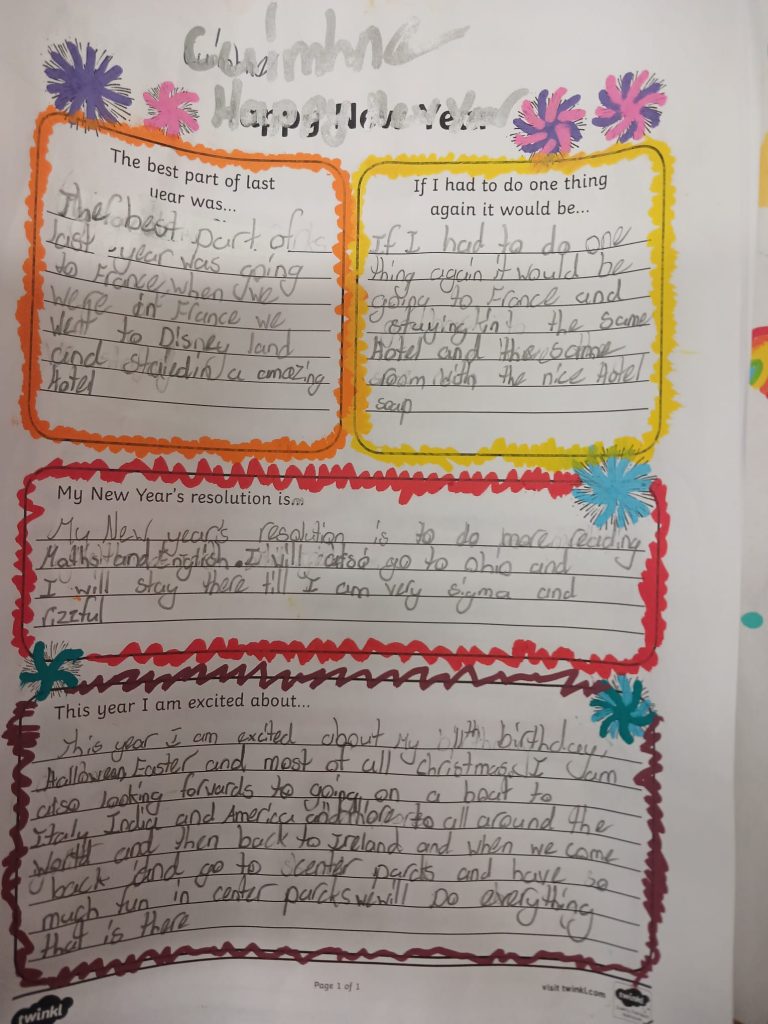 Cuimhne
Happy New Year
The best part of last
year was...
The best part of
last year was going
to France when we
were in France we
went to Disney land
and stayed in a amazing
Hotel
If I had to do one thing
again it would be...
If I had to do one
thing again it would be
going to France and
staying in the same
Hotel and the same
room with the nice Hotel
soap
My New Year's resolution is...
My New year's resolution is to do more reading
Maths and English. I will also go to Ohio and
I will stay there till I am very sigma and
rizzful
This year I am excited about...
This year I am excited about My 11th birthday,
Halloween, Easter and most of all christmas. I am
also looking forwards to going on a boat to
Italy India and America and more to all around the
world and then back to Ireland and when we come
back and go to center parcks and have so
much fun in center parcks we will Do everything
that is there
Page 1 of 1
visit twinkl.com
twinkl
twinkl